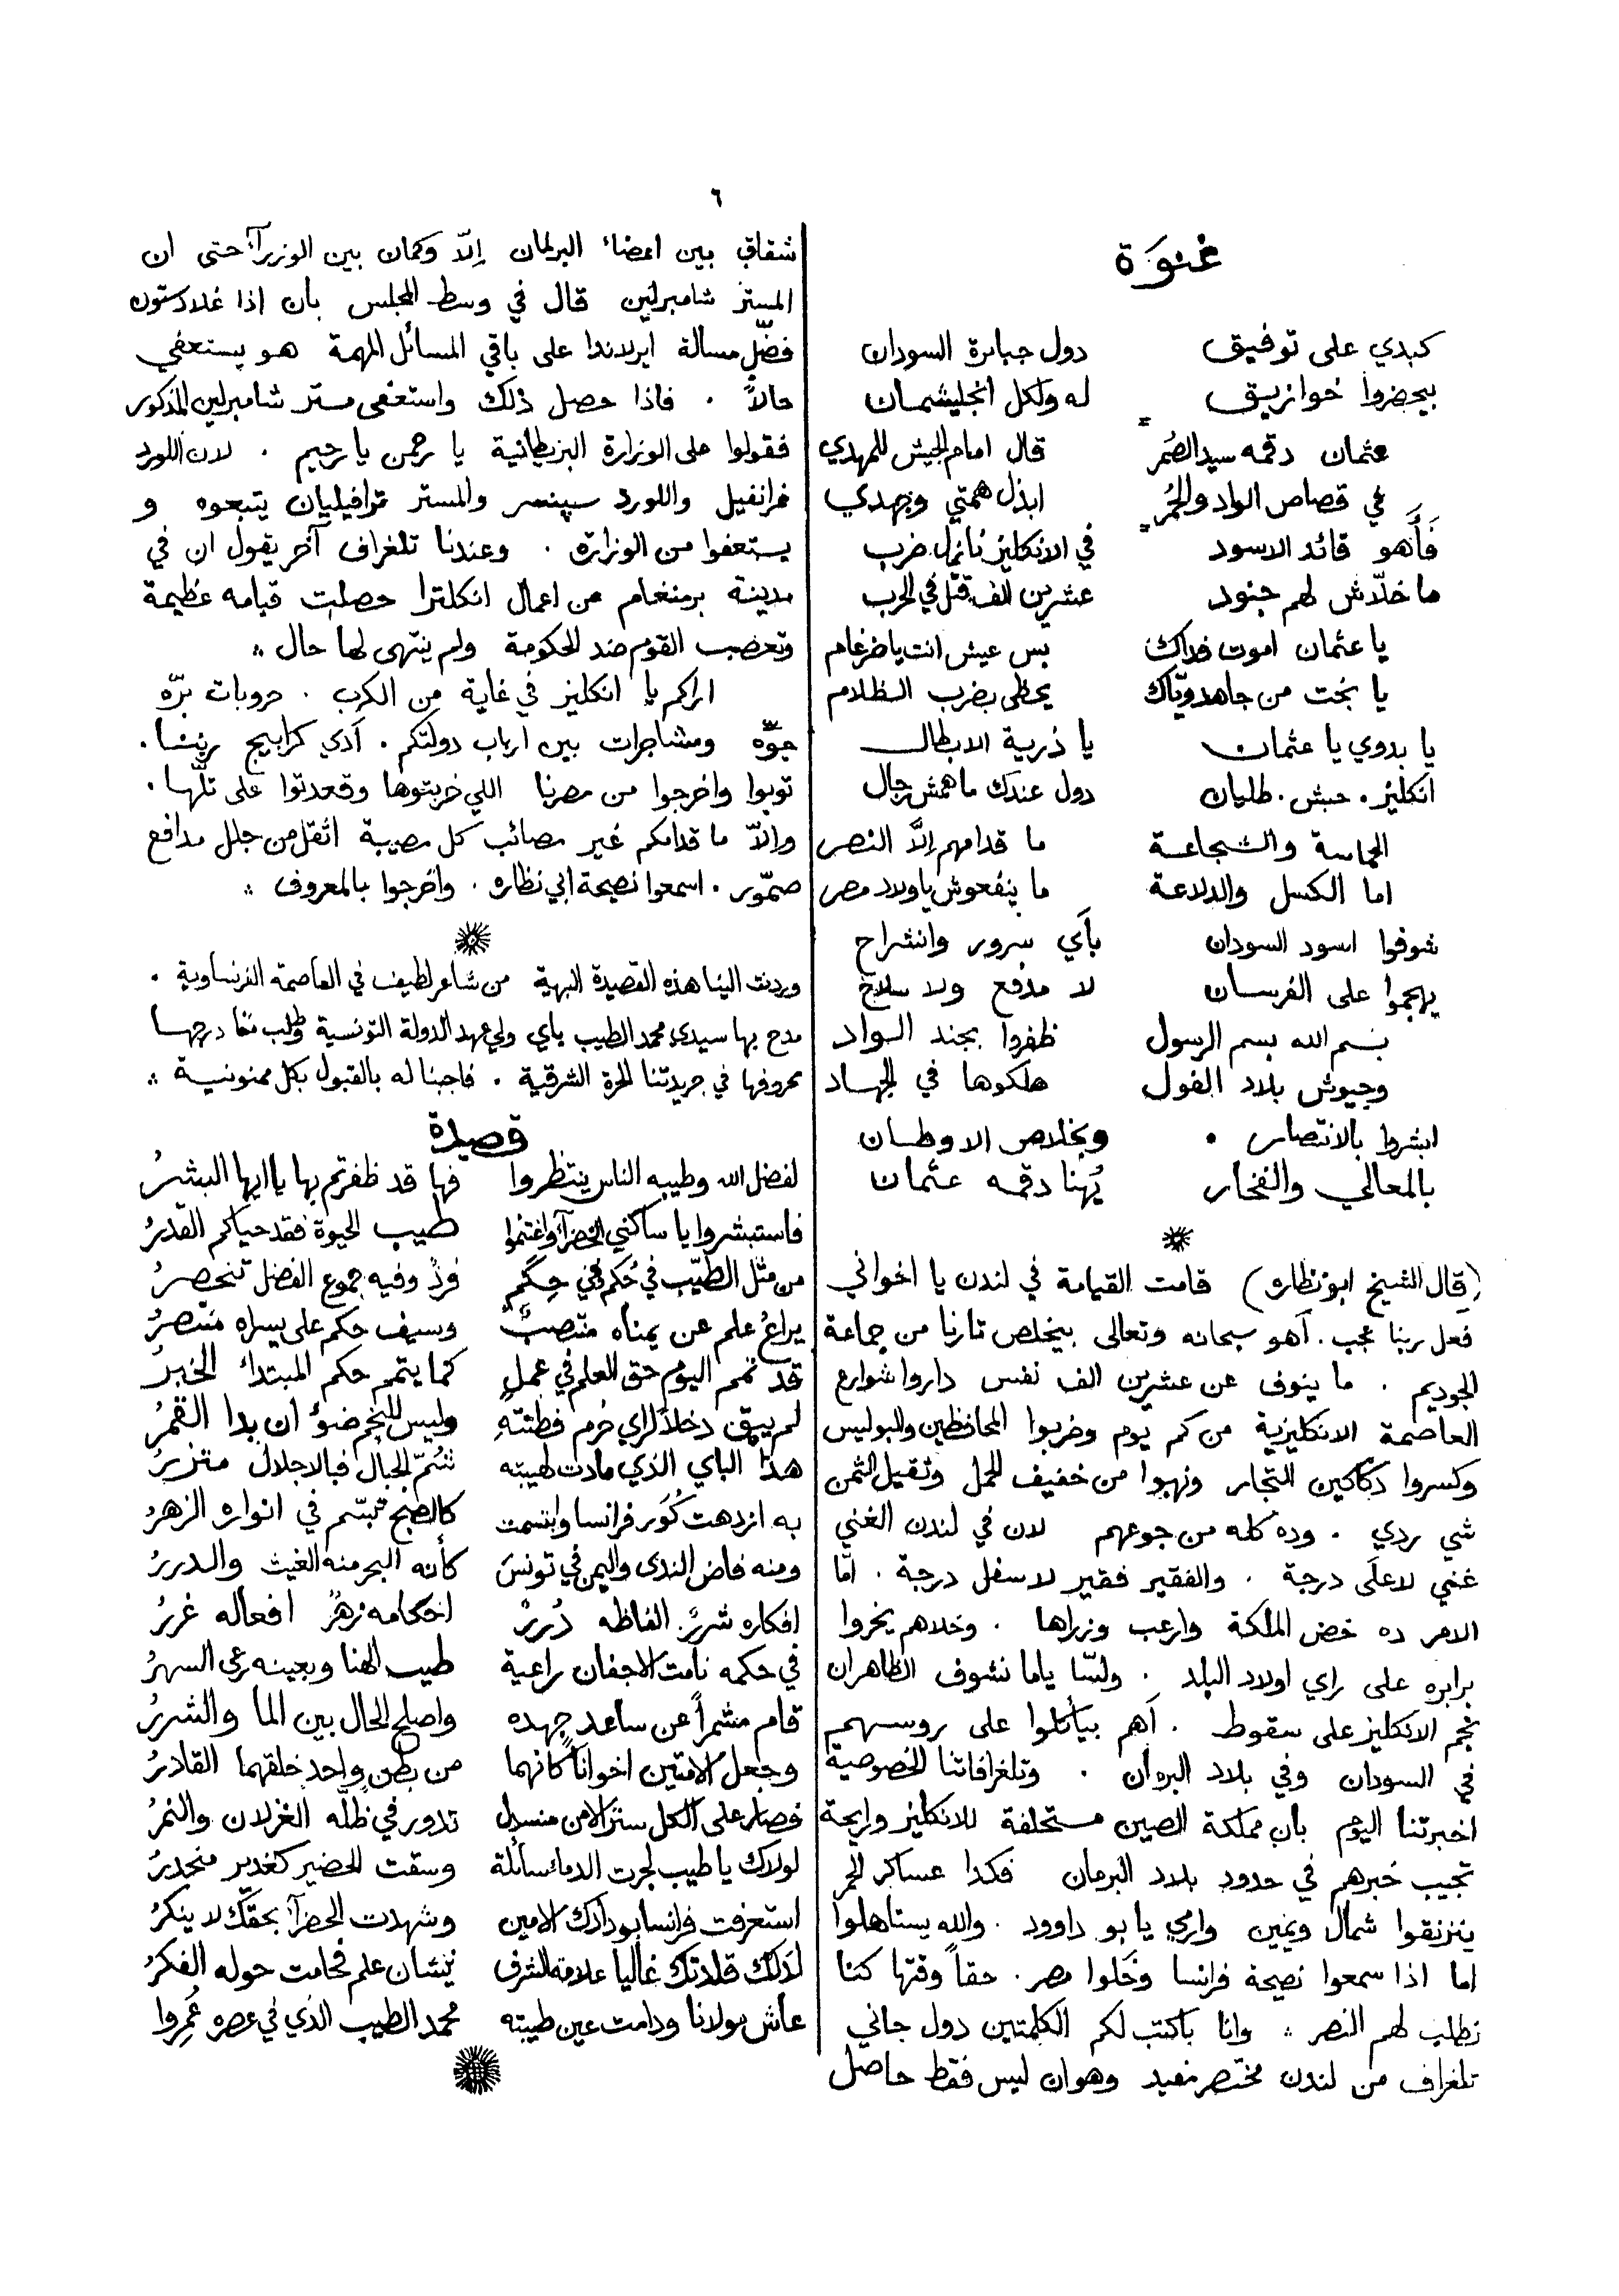 ٦
غنوَة
كبدي على توفيق دول جبابرة السودان
بيحضروا خوازيق له ولكل انجليشمان
عثمان دقمه سيد الصُمر قال امام الجيش للمهدي
في قصاص الواد والحُمر ابذل همتي وجهدي
فَأَهو قائد الاسود في الانكليز نازل ضرب
ما خلّاش لهم جنود عشرين الف قتل في الحرب
يا عثمان اموت فداك بس عيش انت يا ضرغام
يا بخت من جاهد ويّاك يحظى بضرب الظلام
يا بدوي يا عثمان يا ذرية الابطال
انكليز . حبش . طليان دول عندك ما همش رجال
الحماسة والشجاعة ما قدامهم إلاَّ النصر
اما الكسل والدلاعة ما ينفعوش يا ولاد مصر
شوفوا اسود السودان بأَي سرور وانشراح
يهجموا على الفرسان لا مدفع ولا سلاح
بسم الله بسم الرسول ظفروا بجند الواد
وجيوش بلاد الفول هلكوها في الجهاد
ابشروا بالانتصار . وبخلاص الاوطان
بالمعالي والفخار يُهنا دقمه عثمان
(قال الشيخ ابو نظاره) قامت القيامة في لندن يا اخواني
فعل ربنا عجب . آهو سبحانه وتعالى بيخلص تارنا من جماعة
الجوديم . ما ينوف عن عشرين الف نفس داروا شوارع
العاصمة الانكليزية من كم يوم وضربوا المحافظين والبوليس
وكسروا دكاكين التجار ونهبوا من خفيف الحمل وثقيل الثمن
شي ردي . وده كله من جوعهم لان في لندن الغني
غني لاعلَى درجة . والفقير فقير لاسفل درجة . امّا
الامر ده خض الملكة وارعب وزراها . وخلاهم يخروا
برابره على راي اولاد البلد . ولسّا ياما نشوف الظاهران
نجم الانكليز على سقوط . آهم بيأكلوا على روسهم
في السودان وفي بلاد البرمان . وتلغرافاتنا الخصوصية
اخبرتنا اليوم بان مملكة الصين مستحلفة للانكليز ورايحة
تجيب خبرهم في حدود بلاد البرمان فكدا عساكر الحمر
ينزنقوا شمال ويمين وارمي يا بو داوود . والله يستاهلوا
اما اذا سمعوا نصيحة فرانسا وخَلوا مصر . حقاً وقتها كنا
نطلب لهم النصر ؞ وانا باكتب لكم الكلمتين دول جاني
تلغراف من لندن مختصر مفيد وهو ان ليس فقط حاصل
شقاق بين اعضاء البرلمان إلّا وكمان بين الوزرآء حتى ان
المستر شامبرلين قال في وسط المجلس بان اذا غلادستون
فضّل مسالة ايرلاندا على باقي المسائل المهمة هو يستعفي
حالاً . فاذا حصل ذلك واستعفى مستر شامبرلين المذكور
فقولوا على الوزارة البريطانية يا رحمن يا رحيم . لان اللورد
غرانفيل واللورد سپنسر والمستر ترافيليان يتبعوه و
يستعفوا من الوزارة . وعندنا تلغراف آخر يقول ان في
مدينة برمنغام من اعمال انكلترا حصلت قيامه عظيمة
وتعصب القوم ضد الحكومة ولم ينتهى لها حال ؞
اراكم يا انكليز في غاية من الكرب . حروبات برّه
جوّه ومشاجرات بين ارباب دولتكم . آدي كرابيج ربنا .
توبوا واخرجوا من مصرنا اللي خربتوها وقعدتوا على تلّها .
والاّ ما قدامكم غير مصائب كل مصيبة اثقل من جلل مدافع
صمّور . اسمعوا نصيحة ابي نظاره . واخرجوا بالمعروف ؞
وردت الينا هذه القصيدة البهية من شاعر لطيف في العاصمة الفرنساوية .
مدح بها سيدي محمد الطيب باي ولي عهد الدولة التونسية وطلب منا درجها
بحروفها في جريدتنا الحرة الشرقية . فاجبنا له بالقبول بكل ممنونية ؞
قصيدة
لفضل الله وطيبه الناس ينتظروا فها قد ظفرتم بها يا ايها البشرُ
فاستبشروا يا ساكني الخضرآ واغتنموا طيب الحيوة فقد حياكم القدرُ
من مثل الطيّب في حُكم وفي حِكَمٍ فردٌ وفيه جموع الفضل تنحصرُ
يراعُ علم عن يمناه منتصبٌ وسيف حكم على يسراه منتصرُ
قد تمم اليوم حق العلم في عملٍ كما يتمم حكم المبتداء الخبرُ
لم يبق دخلاً لراي خرم فطنتهِ وليس للنجم ضوُ ان بدا القمرُ
هذا الباي الذي مادت لهيبته شُمّ الجبال فبالاجلال متزرُ
به ازدهت كُوَر فرانسا وابتسمت كالصبح تبسّم في انواره الزهرُ
ومنه فاض الندى واليمن في تونسَ كأنه البحر منه الغيث والدررُ
افكاره شررٌ الفاظه دُررٌ احكامه زهرٌ افعاله غررُ
في حكمه نامت الاجفان راعية طيب الهنا وبعينه رعى السهرُ
قام مشمراً عن ساعد جهده واصلح الحال بين الما والشررُ
وجعل الامتين اخواناً كانهما من بطن واحد خلقهما القادرُ
فصار على الكل ستر الامن منسدل تدور في ظلّه الغزلان والنمرُ
لولاك يا طيب لجرت الدماء سائلة وسقت الحضير كغدير منحدرُ
استعرفت فرانسا بودادك الامين وشهدت الخضرآ بحقّك لا ينكرُ
لذلك قلدتك غالياً علامة الشرف نيشان علم فحامت حوله الفكرُ
عاش مولانا ودامت عين طيبته محمد الطيب الذي في عصره عُمِروا